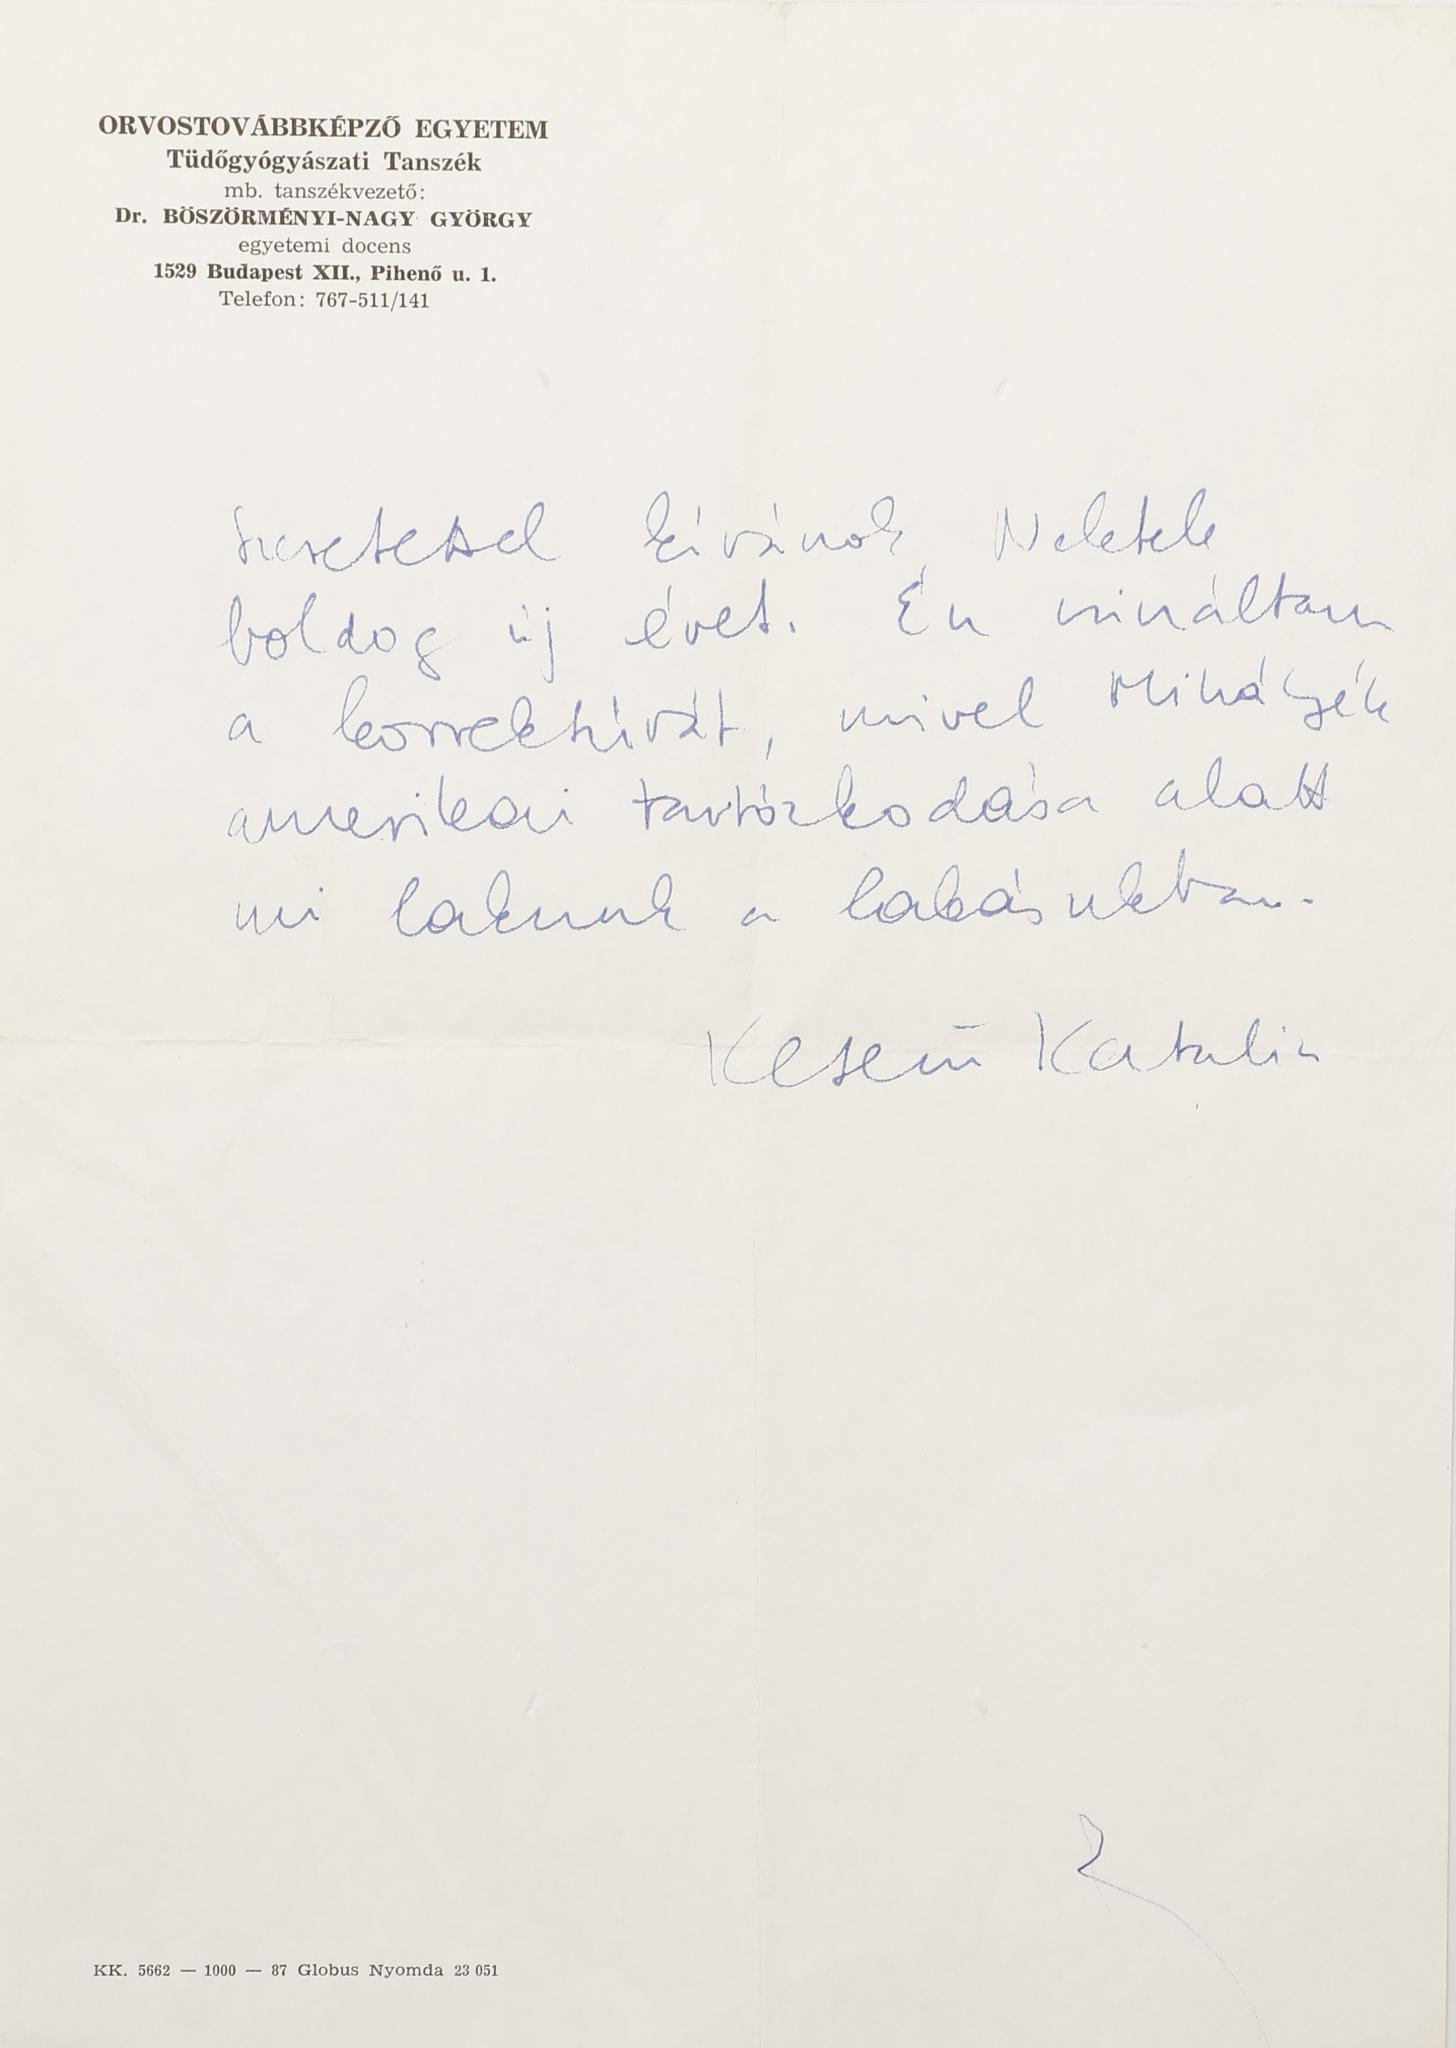 ORVOSTOVÁBBKÉPZŐ EGYETEM
Tüdőgyógyászati Tanszék
mb. tanszékvezető:
Dr. BÖSZÖRMÉNYI-NAGY GYÖRGY
egyetemi docens
1529 Budapest XII., Pihenő u. 1.
Telefon: 767-511/141
Szeretettel kívánok Nektek
boldog új évet. Én csináltam
a korrektúrát, mivel Mihályék
amerikai tartózkodása alatt
mi lakunk a lakásukban.
Keserü Katalin
KK. 5662 — 1000 — 87 Globus Nyomda 23 051